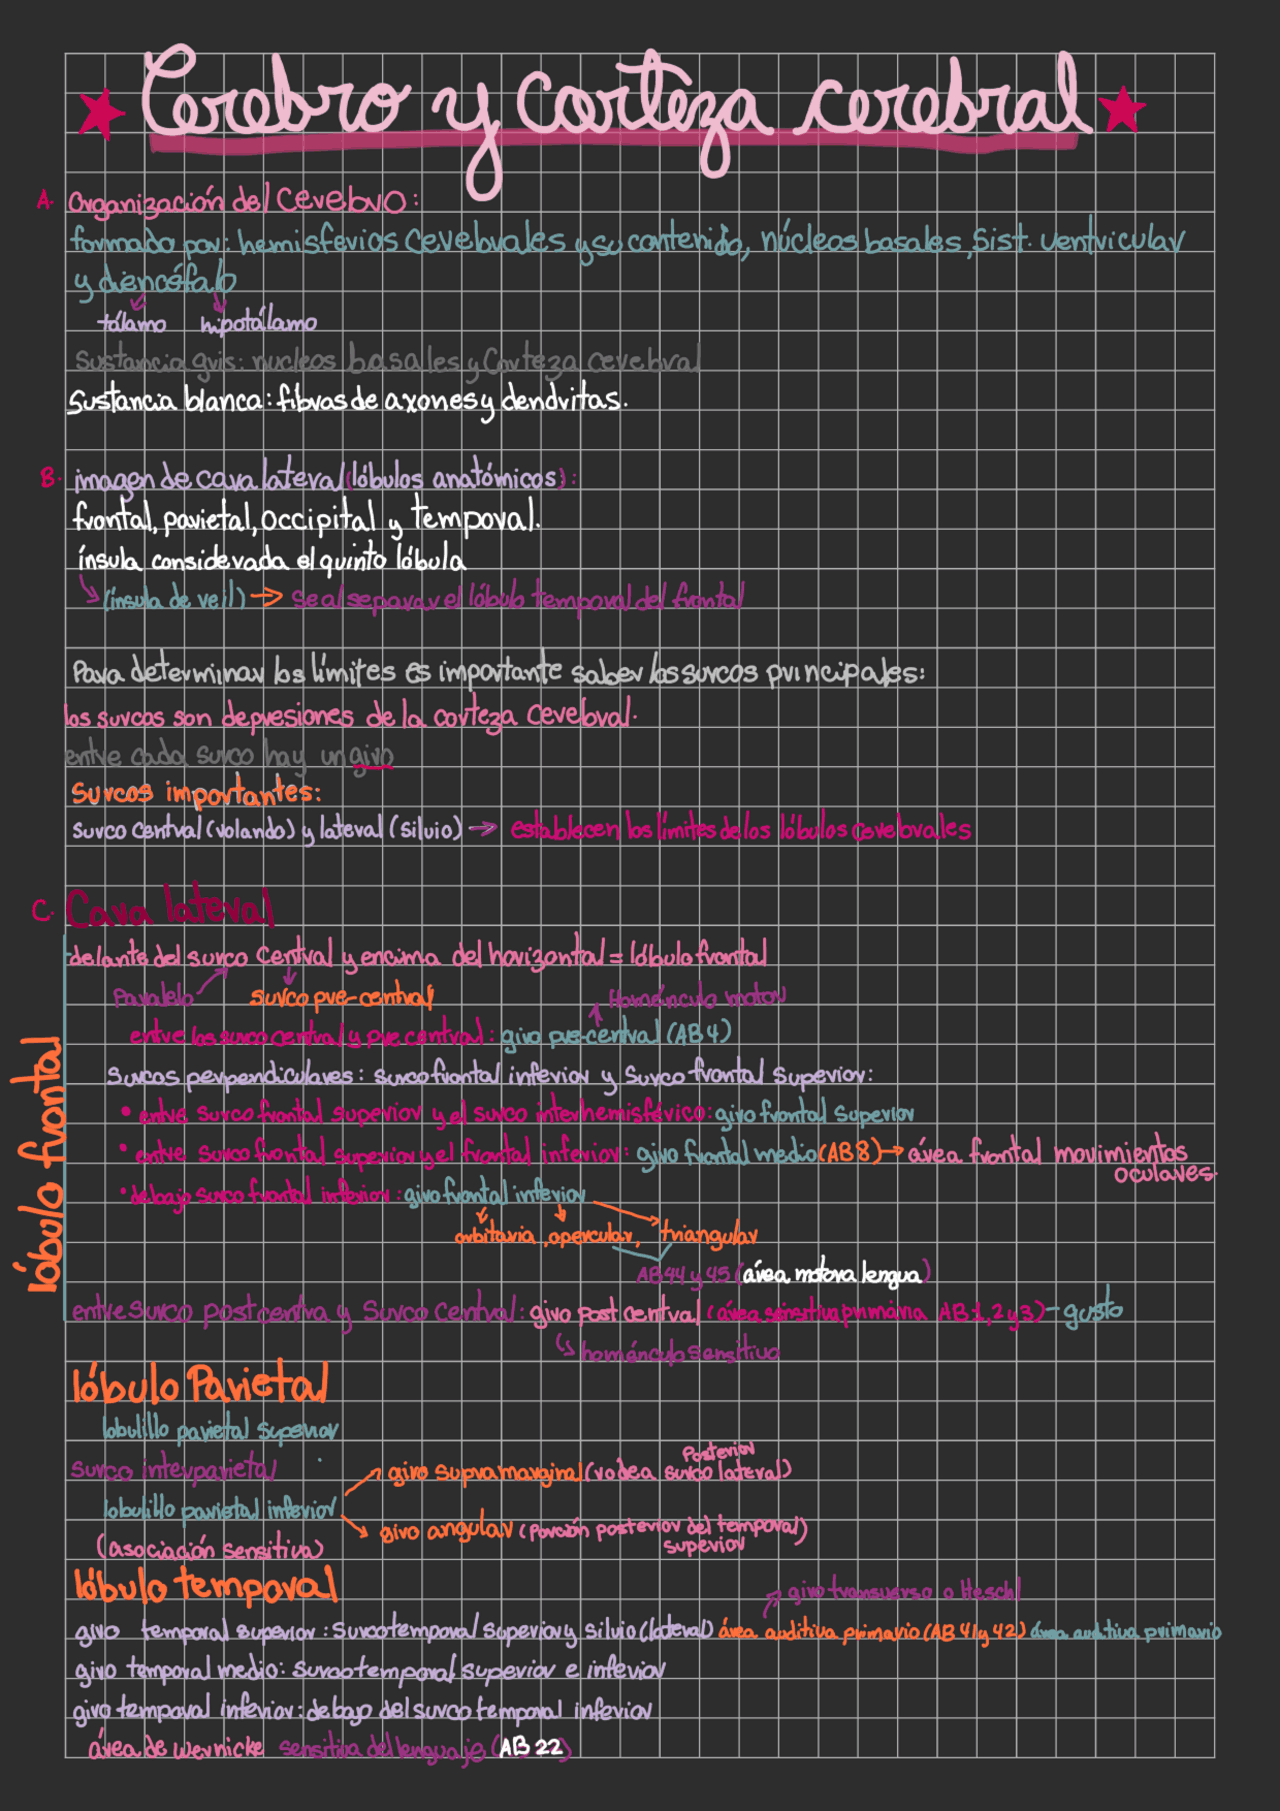 Cerebro y corteza cerebral
A. Organización del cerebro:
formado por: hemisferios cerebrales y su contenido, núcleos basales, Sist. ventricular
y diencéfalo
tálamo hipotálamo
Sustancia gris: nucleos basales y Corteza cerebral
Sustancia blanca: fibras de axones y dendritas.
B. imagen de cara lateral (lóbulos anatómicos):
frontal, parietal, occipital y temporal.
ínsula considerada el quinto lóbula
(ínsula de reil) → se al separar el lóbulo temporal del frontal
Para determinar los límites es importante saber los surcos principales:
los surcos son depresiones de la corteza cerebral.
entre cada surco hay un giro
Surcos importantes:
surco central (rolando) y lateral (silvio) → establecen los límites de los lóbulos cerebrales
C. Cara lateral
lóbulo frontal
delante del surco central y encima del horizontal = lóbulo frontal
Paralelo surco pre-central Homúnculo motor
entre los surco central y pre central: giro pre-central (AB 4)
Surcos perpendiculares: surco frontal inferior y Surco frontal superior:
• entre surco frontal superior y el surco interhemisférico: giro frontal superior
• entre surco frontal superior y el frontal inferior: giro frontal medio (AB 8) → área frontal movimientos
oculares.
• debajo surco frontal inferior: giro frontal inferior
orbitaria, opercular, triangular
AB 44 y 45 (área motora lengua)
entre surco postcentra y Surco Central: giro post central (área sensitiva primaria AB 1, 2 y 3) - gusto
homúnculo sensitivo
lóbulo Parietal
lobulillo parietal superior
surco interparietal
giro supramarginal (rodea surco lateral) Posterior
lobulillo parietal inferior
giro angular (Porción posterior del temporal)
superior
(asociación sensitiva)
lóbulo temporal
giro transverso o Heschl
giro temporal superior: Surco temporal superior y silvio (lateral) área auditiva primario (AB 41 y 42) área auditiva primario
giro temporal medio: surco temporal superior e inferior
giro temporal inferior: debajo del surco temporal inferior
área de wernicke sensitiva del lenguaje (AB 22)